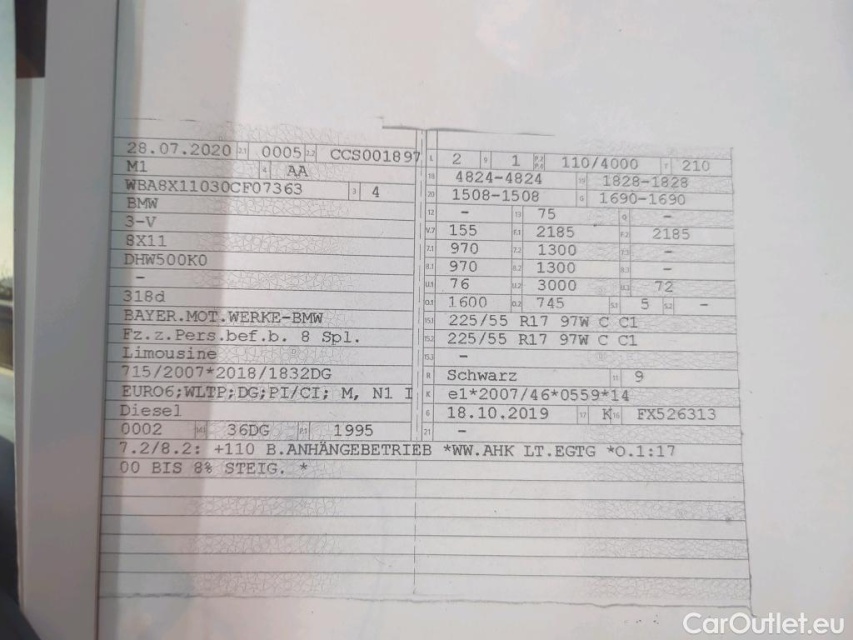 28.07.2020 2.1 0005 2.2 CCS001897
M1 4 AA
WBA8X11030CF07363 3 4
BMW
3-V
8X11
DHW500K0
-
318d
BAYER.MOT.WERKE-BMW
Fz.z.Pers.bef.b. 8 Spl.
Limousine
715/2007*2018/1832DG
EURO6;WLTP;DG;PI/CI; M, N1 I
Diesel
0002 36DG 1995
L 2 9 1 110/4000 T 210
18 4824-4824 19 1828-1828
20 1508-1508 G 1690-1690
12 - 13 75 Q -
V.7 155 F.1 2185 F.2 2185
7.1 970 7.2 1300 -
8.1 970 8.2 1300 8.3 -
U.1 76 U.2 3000 U.3 72
O.1 1600 O.2 745 S.1 5 S.2 -
15.1 225/55 R17 97W C C1
15.2 225/55 R17 97W C C1
15.3 -
R Schwarz 11 9
K e1*2007/46*0559*14
6 18.10.2019 17 K 16 FX526313
21 -
7.2/8.2: +110 B.ANHÄNGEBETRIEB *WW.AHK LT.EGTG *O.1:17
00 BIS 8% STEIG. *
CarOutlet.eu